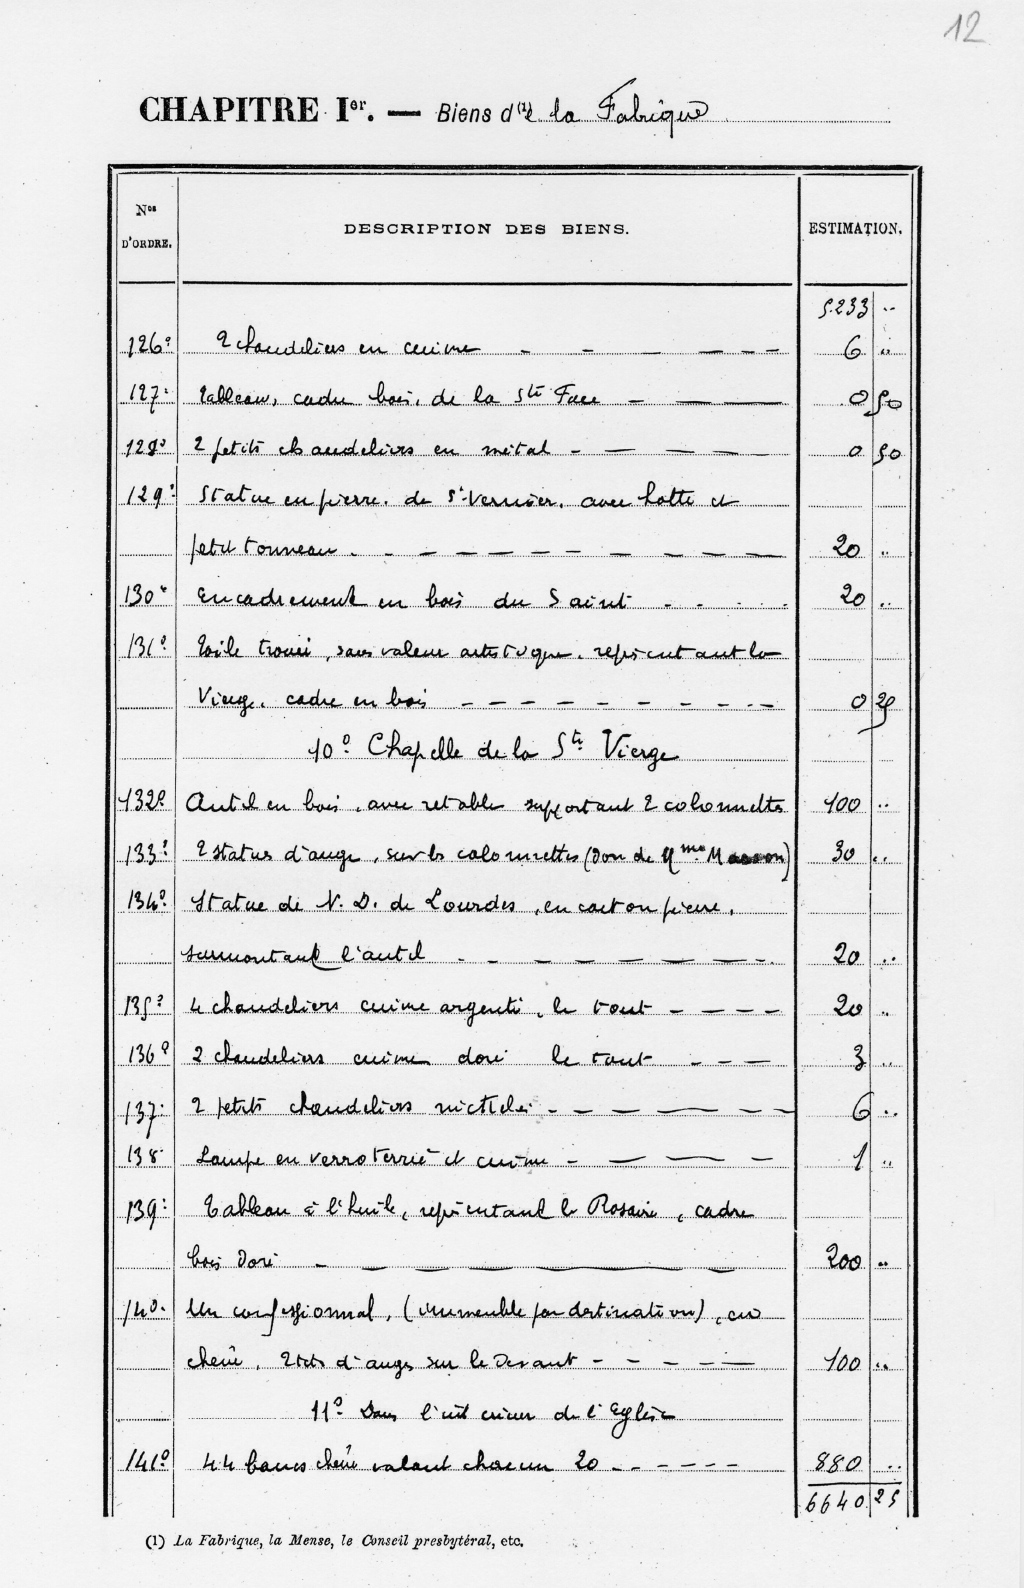 12
CHAPITRE Ier. — Biens d(1)e la Fabrique
Nos D'ORDRE. DESCRIPTION DES BIENS. ESTIMATION.
5.233 "
126° 2 chandeliers en cuivre - - - - - - 6 "
127° Tableau, cadre bois, de la Ste Face - — — 0 50
128° 2 petits chandeliers en métal - - - - - 0 50
129° Statue en pierre, de St Vernier, avec hotte et
petit tonneau - - - - - - - - - - 20 "
130° Encadrement en bois du Saint - - - - 20 "
131° Toile trouée, sans valeur artistique, représentant la
Vierge, cadre en bois - - - - - - - - - 0 25
10° Chapelle de la Ste Vierge
132° Autel en bois, avec retable supportant 2 colonnettes 100 "
133° 2 statues d'ange, sur les colonnettes (Don de Mme Masson) 30 "
134° Statue de N. D. de Lourdes, en carton pierre,
surmontant l'autel - - - - - - - - 20 "
135° 4 chandeliers cuivre argenté, le tout - - - - 20 "
136° 2 chandeliers cuivre doré le tout - - - 3 "
137° 2 petits chandeliers nickelés - - - - - - 6 "
138° Lampe en verroterrie et cuivre - - - - 1 "
139° Tableau à l'huile, représentant le Rosaire, cadre
bois doré - - - - - - 200 "
140° Un confessionnal, (immeuble par destination), en
chêne, 2 têtes d'anges sur le devant - - - - - 100 "
11° Dans l'intérieur de l'Eglise
141° 44 bancs chêne valant chacun 20 - - - - - - 880 "
6640 25
(1) La Fabrique, la Mense, le Conseil presbytéral, etc.